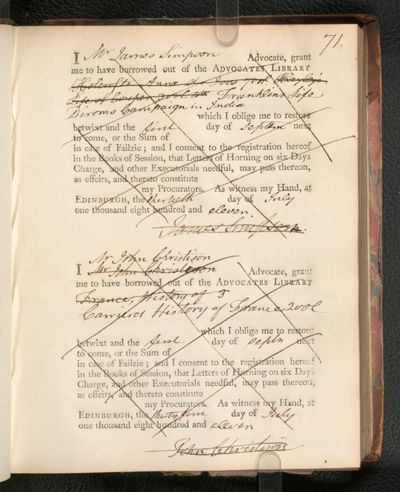 71
I Mr James Simpson Advocate, grant
me to have borrowed out of the ADVOCATES LIBRARY
Franklins Life
Diroms Campaign in India
which I oblige me to restore
betwixt and the first day of Septem next
to come, or the Sum of
in case of Failzie; and I consent to the registration hereof
in the Books of Session, that Letters of Horning on six Days
Charge, and other Executorials needful, may pass thereon,
as effeirs, and thereto constitute
my Procurators. As witness my Hand, at
EDINBURGH, the day of July
one thousand eight hundred and eleven.
James Simpson.
Mr John Christison
I Mr John Christison Advocate, grant
me to have borrowed out of the ADVOCATES LIBRARY
France, History of
History of France 2 vol
which I oblige me to restore
betwixt and the first day of Septr next
to come, or the Sum of
in case of Failzie; and I consent to the registration hereof
in the Books of Session, that Letters of Horning on six Days
Charge, and other Executorials needful, may pass thereon,
as effeirs, and thereto constitute
my Procurators. As witness my Hand, at
EDINBURGH, the thirty first day of July
one thousand eight hundred and eleven
John Christison